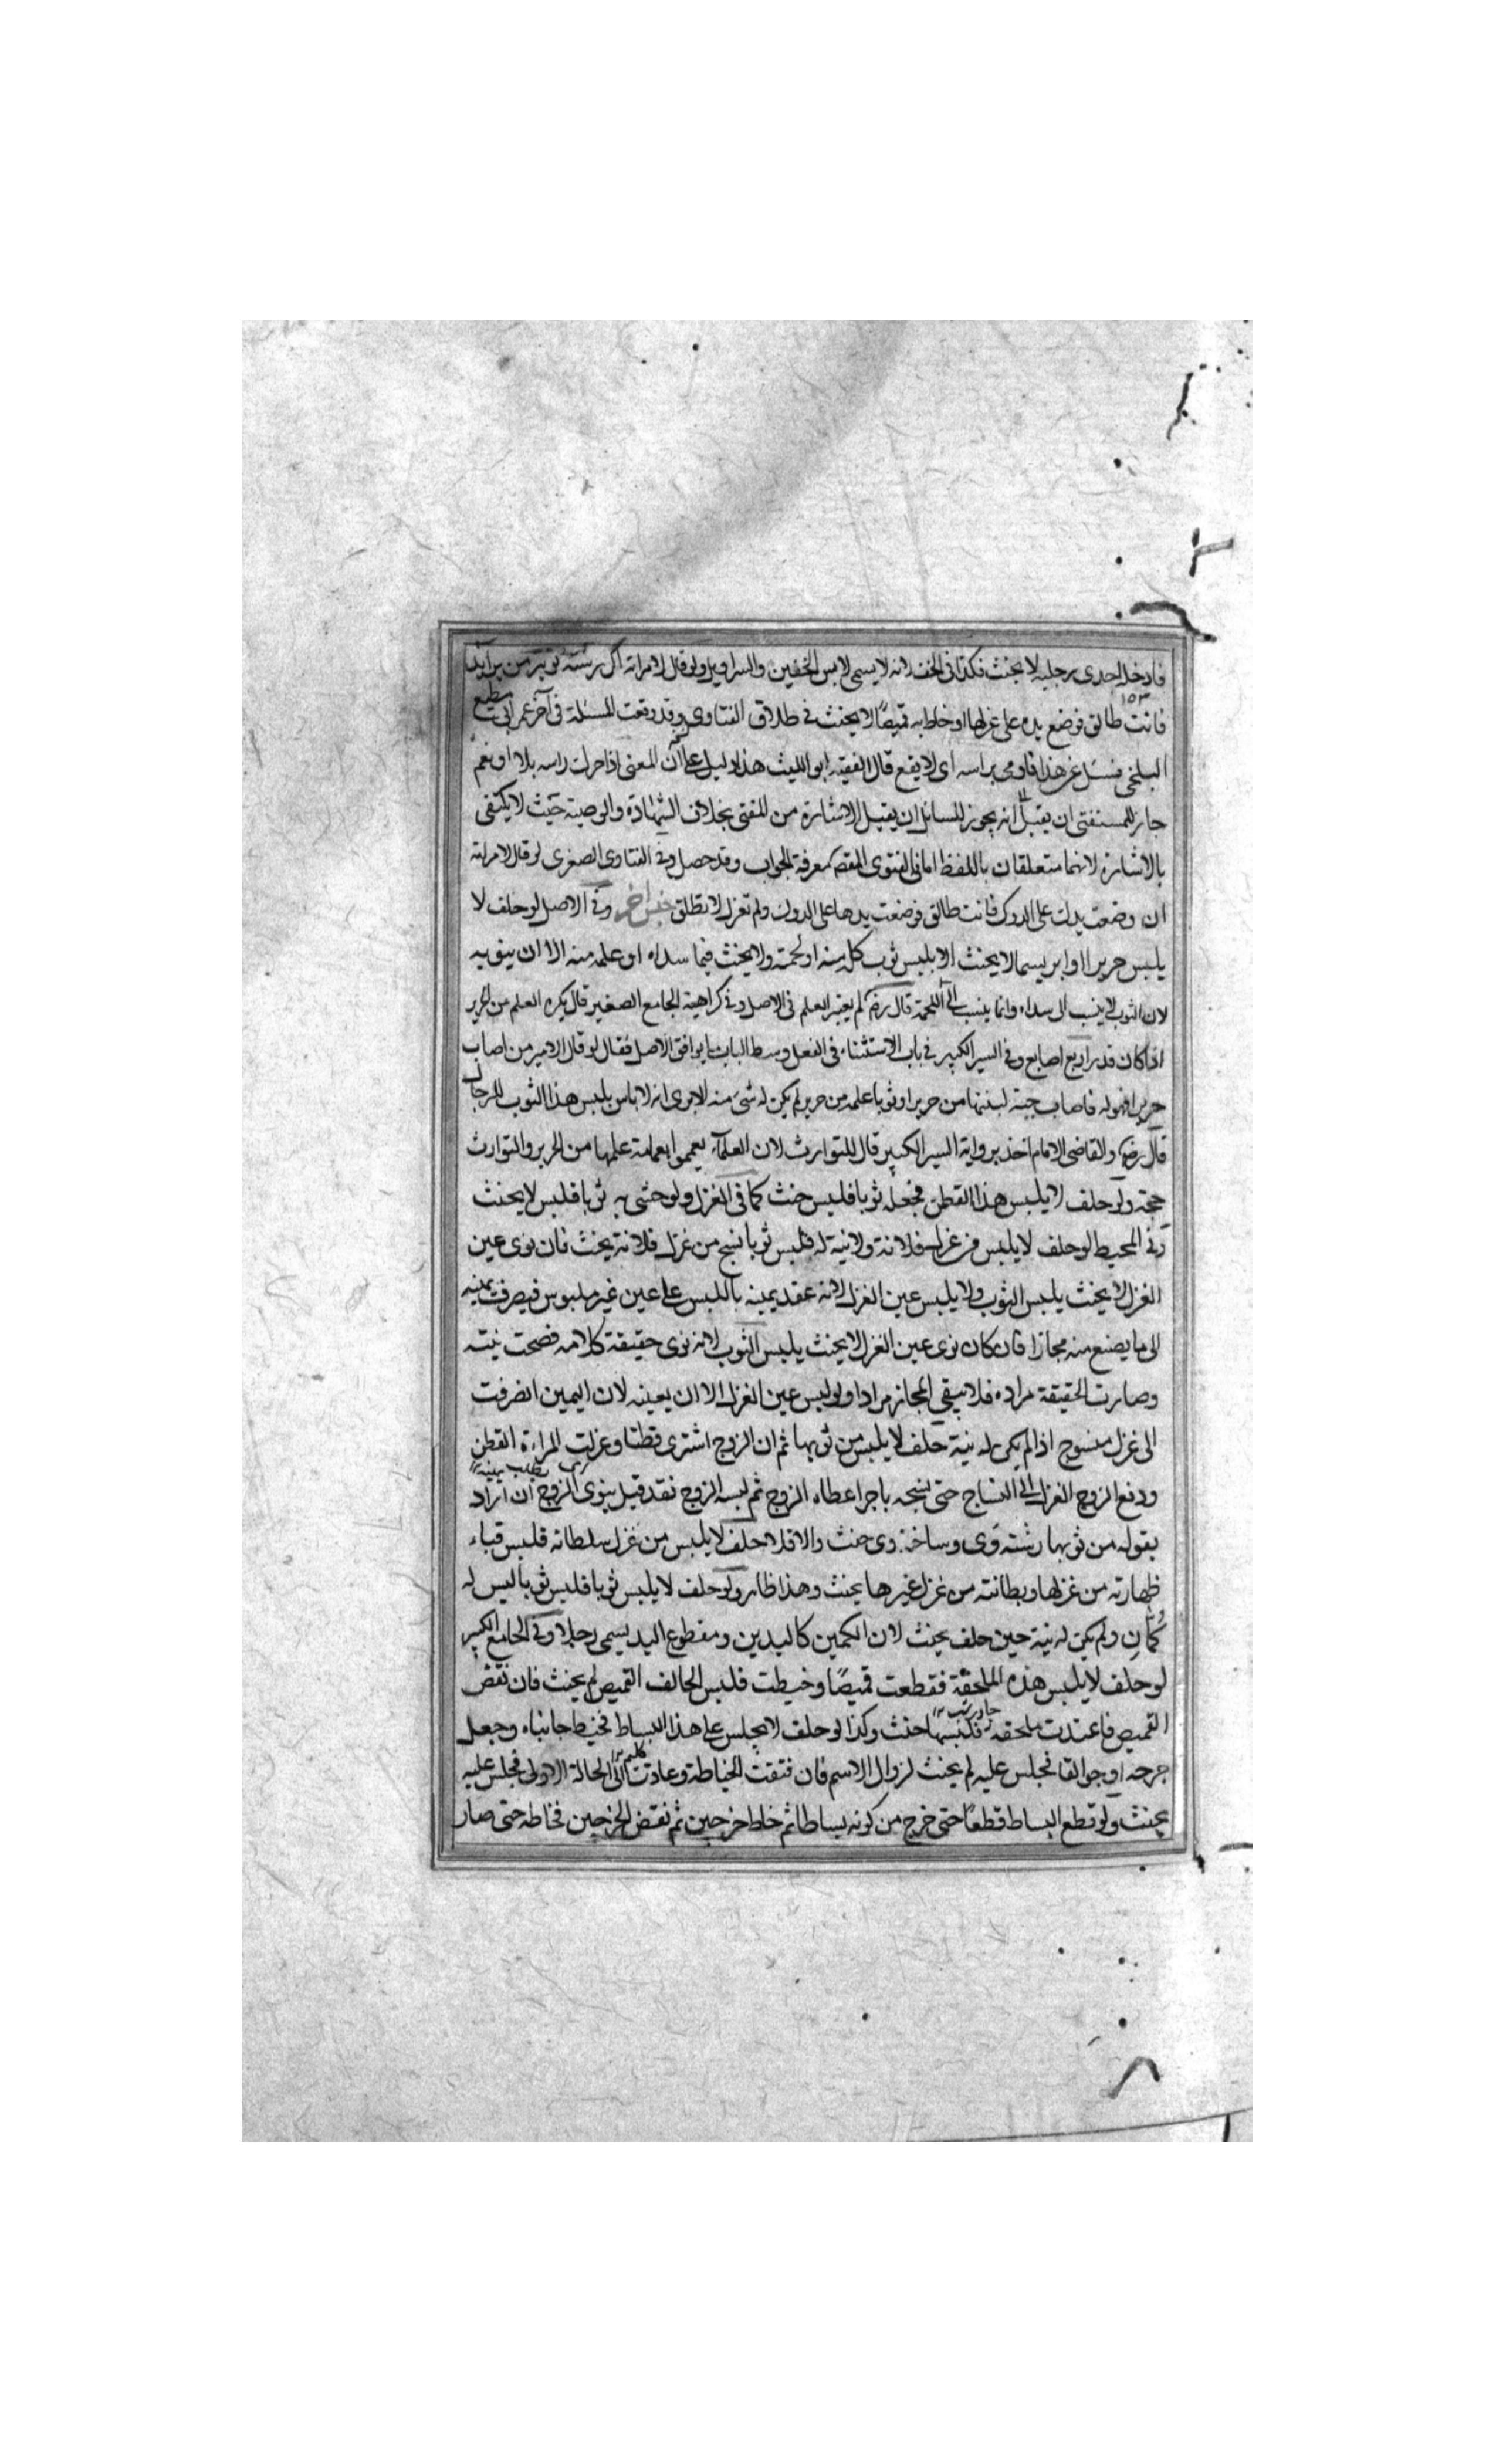 فادخل احدى رجليه لا يحنث فكذا فى الخف لانه لا يسمى لابس الخفين والسراويل ولو قال لامراته اكر رشته تو بر من برآيد
فانت طالق فوضع يده على غزلها او خاط به قميصًا لا يحنث فى طلاق الفتاوى وقد وقعت المسئلة فى آخر عمر ابى مطيع
١٥٣
البلخى فسئل عن هذا فاومى براسه اى لا يقع قال الفقيه ابو الليث هذا دليل على ان المفتى اذا حرك راسه بلا او نعم
جاز للمستفتى ان يقبل لانه يجوز للسائل ان يقبل الاشارة من المفتى بخلاف الشهادة والوصية حيث لا يكتفى
بالاشارة لانهما متعلقان باللفظ اما فى الفتوى المقصد معرفة الجواب وقد حصل وفى الفتاوى الصغرى لو قال لامراته
ان وضعت يدك على الدوك فانت طالق فوضعت يدها على الدوك ولم تغزل لا تطلق جنس آخر وفى الاصل لو حلف لا
يلبس حريرا او ابريسما لا يحنث الا بلبس ثوب كله منه او لحمته ولا يحنث فيما سداه او علمه منه الا ان ينويه
لان الثوب لا ينسب الى سداه وانما ينسب الى اللحمة قال رضه لم يعتبر العلم فى الاصل وفى كراهية الجامع الصغير قال يكره العلم من الحرير
اذا كان قدر اربع اصابع وفى السير الكبير فى باب الاستثناء فى الفعل وسط الباب ما يوافق الاصل فقال لو قال الامير من اصاب
حريرا فهو له فاصاب جبة لبنتها من حرير او ثوبا علمه من حرير لم يكن له شىء منه الا يرى انه لا باس بلبس هذا الثوب للرجال
قال رضه والقاضى الامام اخذ برواية السير الكبير قال للتوارث لان العلماء يعمموا بعمامة علمها من الحرير والتوارث
حجة ولو حلف لا يلبس هذا القطن فجعله ثوبا فلبس حنث كما فى الغزل ولو حشى به ثوبا فلبس لا يحنث
وفى المحيط لو حلف لا يلبس من غزل فلانة ولا نية له فلبس ثوبا نسج من غزل فلانة يحنث فان نوى عين
الغزل لا يحنث يلبس الثوب ولا يلبس عين الغزل لانه عقد يمينه باللبس على عين غير ملبوس فيصرف يمينه
الى ما يصنع منه مجازا فان كان نوى عين الغزل لا يحنث يلبس الثوب لانه نوى حقيقة كلامه فصحت نيته
وصارت الحقيقة مراده فلا يبقى المجاز مرادا ولو لبس عين الغزل الا ان يعينه لان اليمين انصرفت
الى غزل منسوج اذا لم يكن له نية حلف لا يلبس من ثوبها ثم ان الزوج اشترى قطنا وغزلت المراءة القطن
ودفع الزوج الغزل الى النساج حتى ينسجه باجر اعطاه الزوج ثم لبسه الزوج فقد قيل ينوى الزوج ان اراد
بقوله من ثوبها رشته وى وساخته وى حنث والا فلا حلف لا يلبس من غزل سلطانه فلبس قباء
ظهارته من غزلها وبطانته من غزل غيرها يحنث وهذا ظاهر ولو حلف لا يلبس ثوبا فلبس ثوبا ليس له
كُمان ولم يكن له نية حين حلف يحنث لان الكمين كاليدين ومقطوع اليد يسمى رجلا وفى الجامع الكبير
لو حلف لا يلبس هذه الملحفة فقطعت قميصًا وخيطت فلبس الحالف القميص لم يحنث فان نقض
القميص فاعيدت ملحفة فلبسها حنث وكذا لو حلف لا يجلس على هذا البساط فخيط جانباه وجعل
خرجه او جوالقا فجلس عليه لم يحنث لزوال الاسم فان فتقت الخياطة وعادت الى الحالة الاولى فجلس عليه
يحنث ولو قطع البساط قطعًا حتى خرج من كونه بساطا ثم خاط خرجين ثم نقض الخرجين فخاطه حتى صار